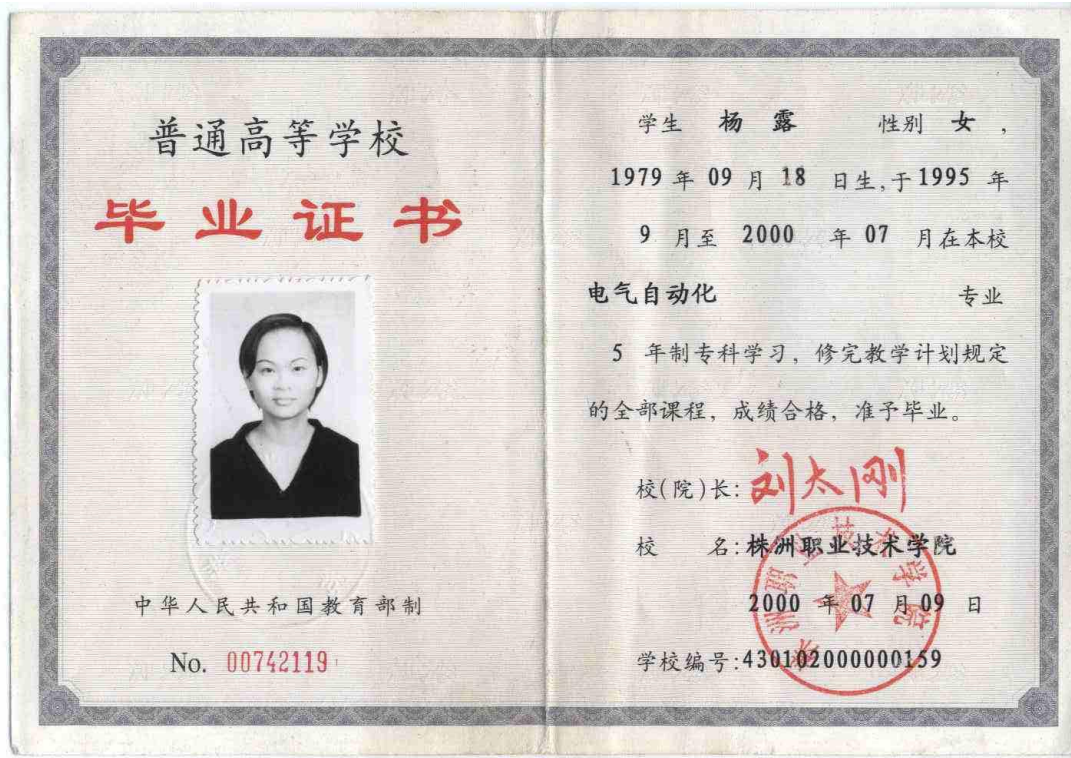 普通高等学校
毕业证书
中华人民共和国教育部制
No. 00742119
学生 杨露 性别 女,
1979 年 09 月 18 日生,于1995 年
9 月至 2000 年 07 月在本校
电气自动化 专业
5 年制专科学习，修完教学计划规定
的全部课程，成绩合格，准予毕业。
校(院)长: 刘太刚
校 名: 株洲职业技术学院
2000 年 07 月 09 日
学校编号: 430102000000159
株洲职业技术学院